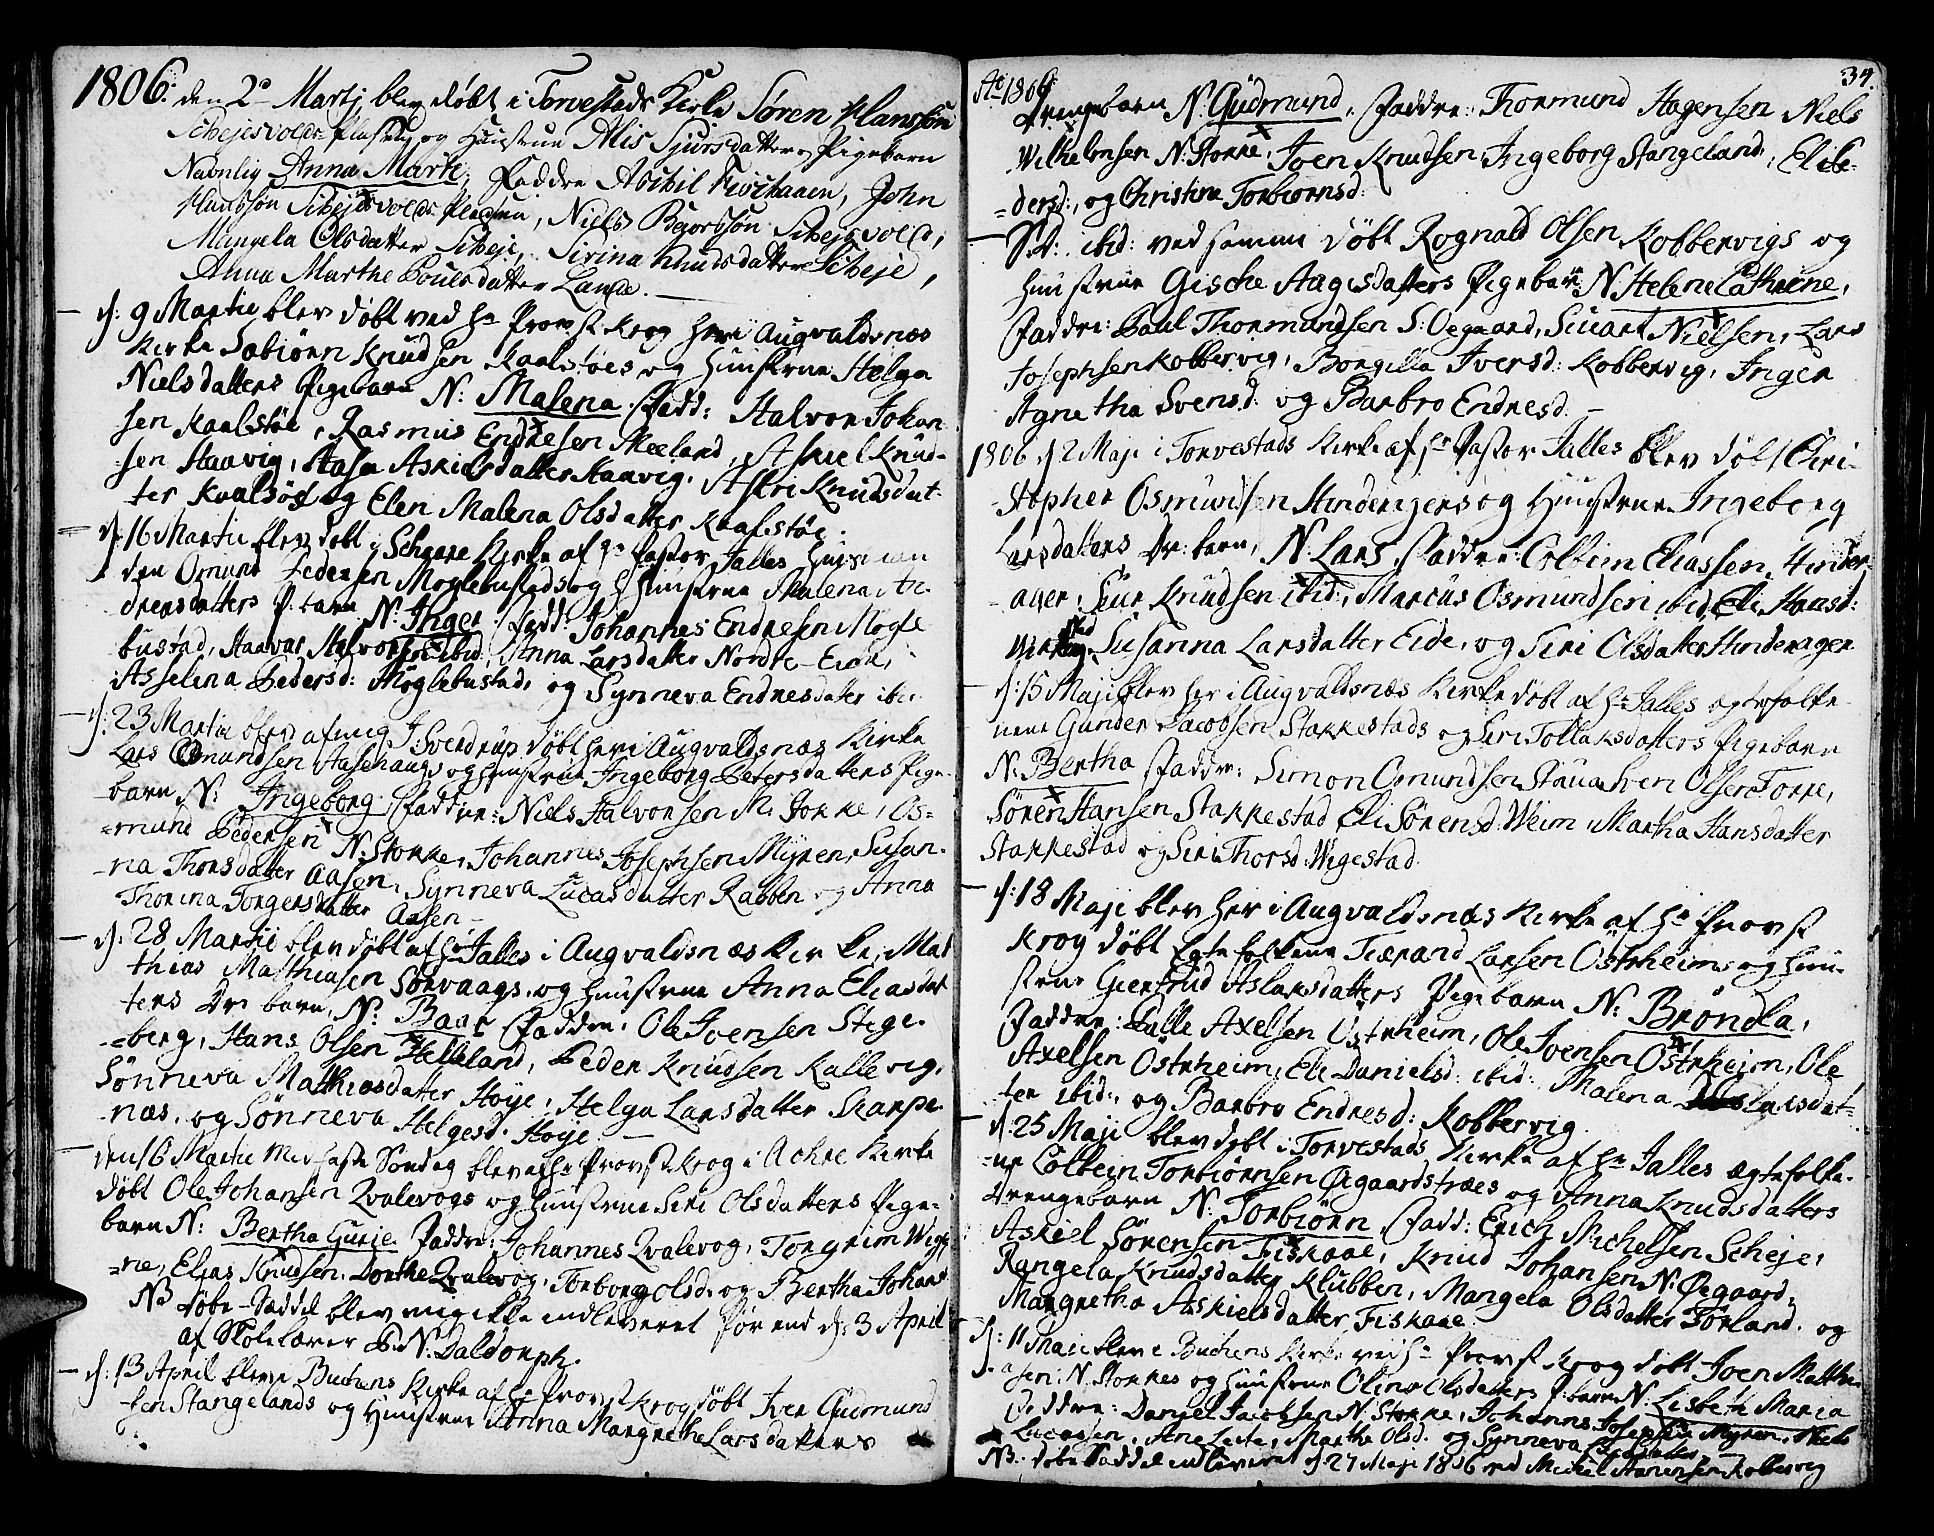 1806. den 2den Martj blev døbt i Torvestads Kirke Søren Hansøn
Schejesvolds Pladsen og Hustrue Alis Sjursdatters Pigebarn
Navnlig Anna Marte, Faddre Aschil Fischaaen, John
Hansøn Schejesvolds Pladsen, Niels Schejesvold,
Mangela Olsdatter Scheje, Sirina Knudsdatter Scheje,
Anna Marthe Poulsdatter Lande.
d: 9 Martii blev døbt ved Hr Provst Krog her i Augvaldsnæs
Kirke Sebiørn Knudsen Kaalstøes og Hustrue Helga
Nielsdatters Pigebarn N: Malena. Fadd: Halvor Johan-
sen Kaalstøe, Rasmus Endresen Meeland, Askiel Knud-
sen Haavig, Aasa Askielsdatter Haavig, Astri Knudsdat-
ter Kvalsøe og Elen Malena Olsdatter Kaalstøe.
d: 16 Martii blev døbt i Schaare Kirke af Hr Pastor Jalles Huusman
den Omund Pedersen Moglebustads og Hustrue Malena An-
drersdatters P. barn N: Inger. Fadd: Johannes Endresen Mogle
bustad, Haavar Halvorsen ibid, Anna Larsdatter Nordre-Eide,
Asselina Pedersd: Moglebustad, og Synneva Endresdatter ibid
d: 23 Martii blev af mig J Sverdrup døbt her i Augvaldsnæs Kirke
Lars Omundsen Aasehaugs og Hustrue Ingeborg Petersdatters Pige-
barn N: Ingeborg. Faddre: Niels Halvorsen M: Jokke, Os-
mund Pedersen N: Stokke, Johannes Josephsen Myren, Susan-
na Thorsdatter Aasen, Synneva Lucasdatter Rabben og Anna
Thorina Torgersdatter Aasen
d: 28 Martii blev døbt af Hr Jalles i Augvaldsnæs Kirke, Mat
thias Matthiasen Sørvaags og Hustrue Anna Eliasdat
ters Dr barn N: Baar Faddre: Ole Joensen Stege-
berg, Hans Olsen Helleland, Peder Knudsen Kallevig,
Sønneva Mathiasdatter Høje, Helga Larsdatter Skarpe-
næs, og Sønneva Helgesd. Høje.
den 16 Martii Mid faste Søndag blev af Hr Provst Krog i Aakre Kirke
døbt Ole Johansen Qvalevogs og Hustrue Siri Olsdatters Pige-
barn N: Bertha Gurie. Faddre: Johannes Qvalevog, Torgrim Wig-
ne, Elias Knudsen, Dorthe Qvalevog, Torborg Olsd. og Bertha Johans
NB døbe-Sæddel blev mig ikke indleveret før end d: 3 April
af Skolelærer P. N. Daldorph.
d: 13 April blev i Buckens Kirke af Hr Provst Krog døbt Iver Gudmund
sen Stangelands og Hustrue Anna Margrethe Larsdatters
34.
Ao 1806
Drengebarn N. Gudmund. Faddre: Thormund Hagensen Niels
Wilhelmsen N: Stokke, Joen Knudsen, Ingeborg Stangeland, Eli Pe-
dersd:, og Christina Torbiørnsd.
Sd: ibid: ved samme døbt Rognald Olsen Kobbervigs og
Hustrue Gische Aagesdatters Pigebarn N. Helene Cathrine,
Faddre: Paul Thormundsen S: Oegaard, Sivart Nielsen, Lars
Josephsen Kobbervig, Borgilla Iversd: Kobbervig, Inger
Agnetha Svensd. og Barbro Endresd.
1806 d 2 Maji i Torvestads Kirke af Hr Pastor Jalles blev døbt Chri-
stopher Osmundsen Hinderagers og Hustrue Ingeborg
Larsdatters Dr: barn, N. Lars. Faddre: Colbein Eliassen Hinder-
ager, Siur Knudsen ibid:, Marcus Osmundsen ibid, Eli Hansd:
Susanna Larsdatter Eide, og Siri Olsdatter Hinderager
d: 15 Maji blev her i Augvaldsnæs Kirke døbt af Hr Jalles ægtefolke-
nene Gunder Jacobsen Stakkestads og Siri Tollaksdatters Pigebarn
N: Bertha Faddre: Simon Osmundsen Staua, Iven Olsen Tokke,
Søren Hansen Stakkestad, Eli Sørensd. Weim, Martha Hansdatter
Stakkestad og Siri Thorsd. Wigestad.
d: 18 Maji blev her i Augvaldsnæs Kirke af Hr Provst
Krog døbt Egtefolkene Tærand Larsen Østrheims og Hu-
strue Giertrud Aslaksdatters Pigebarn N: Brønla,
Faddre: Salle Axelsen Østrheim, Ole Joensen Østrheim, Ole
Axelsen Østrheim, Eli Danielsd: ibid: Malena Larsdat-
ter ibid:, og Barbro Endresd: Kobbervig.
d: 25 Maji blev døbt i Torvestads Kirke af Hr Jalles ægtefolke-
ne Colbein Torbiørnsen Øegaardstræes og Anna Knudsdatters
Drengebarn N: Torbiørn Fadd: Erich Michelsen Scheje,
Askiel Sørensen Fiskaae, Knud Johansen N: Øegaard,
Rangela Knudsdatter Klubben, Mangela Olsdatter Førland, og
Margretha Askielsdatter Fiskaae.
d: 11 Maji blev i Buckens Kirke ved Hr Provst Krog døbt Joen Matthi-
asen N. Stokkes og Hustrue Olina Olsdatters P: barn N. Lisbeth Maria
Faddre: Daniel Jacobsen N. Stokke, Johannes Josephsen Myren, Niels
Lucasen, Ane Leite, Marthe Olsd. og Synneva
NB: døbe Sæddel indleveret d 27 Maji 1806 ved Michel Kobbervig